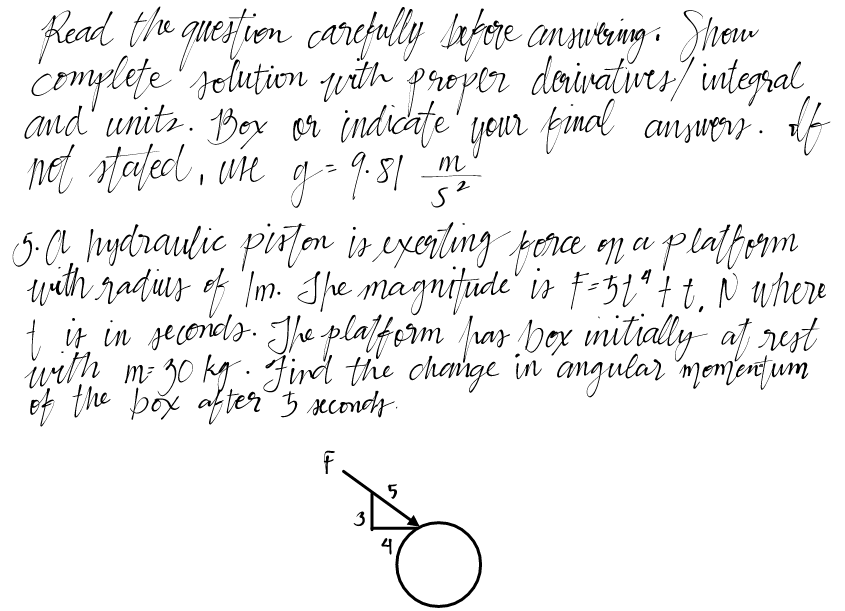 Read the question carefully before answering. Show
complete solution with proper derivatives/integral
and units. Box or indicate your final answers. If
not stated, use g = 9.81 m/s²
5. A hydraulic piston is exerting force on a platform
with radius of 1m. The magnitude is F=5t⁴+t, N where
t is in seconds. The platform has box initially at rest
with m=30 kg. Find the change in angular momentum
of the box after 5 seconds.
F
5
3
4